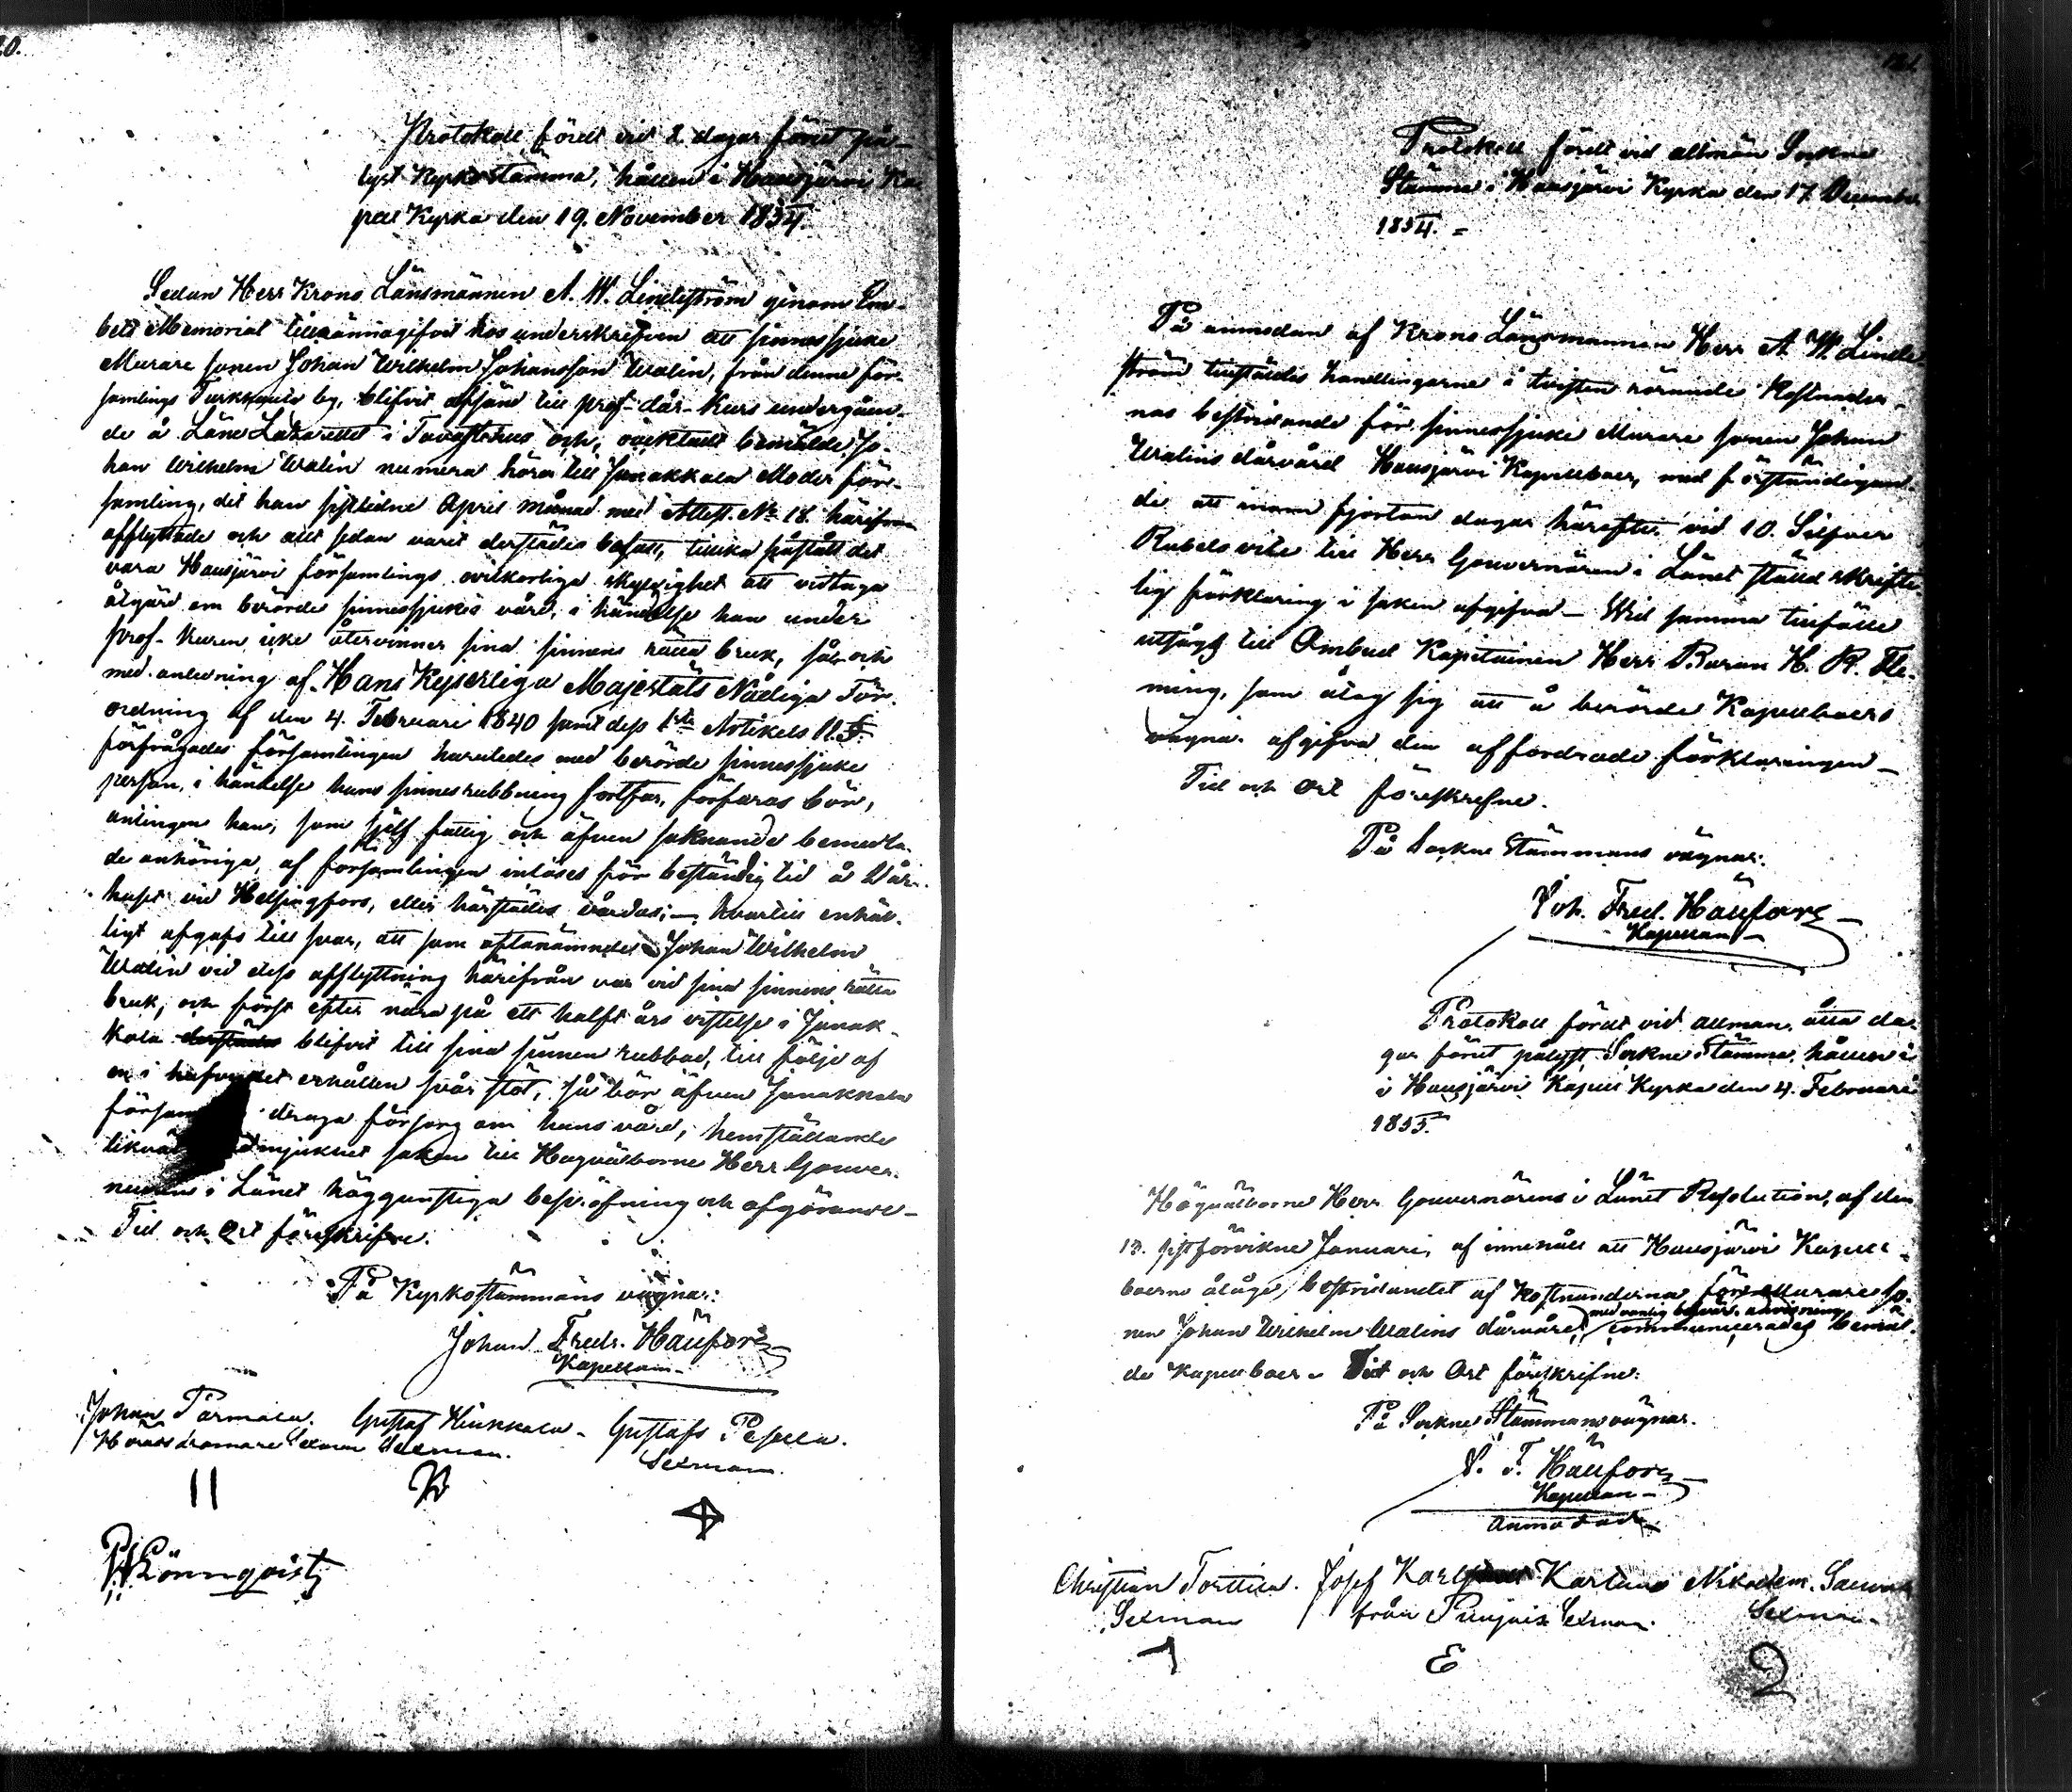 20.
Protokoll fördt vid 8 dagar förut på-
lyst Kyrkostämma, hållen i Hausjärvi Ka-
pell Kyrka den 19. November 1854.
Sedan Herr Krono Länsmannen A. W. Lindeström genom Em-
bets Memorial tillkännagifvit hos underskrifven att sinnessjuke
Murare sonen Johan Wilhelm Johansson Walin, från denne för-
samlings Turkhauta by, blifvit afsänd till prof-dår-kurs undergåen-
de å Läne Lazarettet i Tavastehus och, oacktadt bemälde Jo-
han Wilhelm Walin numera hörer till Janakkala Moder för-
samling, dit han sistledne April månad med Attest. No 18. härifrån
afflyttade och allt sedan varit derstädes bosatt, tillika påstått det
vara Hausjärvi församlings ovilkorliga skyldighet att vidtaga
åtgärd om berörde sinnessjukes vård, i händelse han under
prof-kuren icke återvinner sina sinnens rätta bruk, så och
med anledning af Hans Kejserliga Majestäts Nådiga För-
ordning af den 4. Februari 1840 samt dess 1sta Artikels 11. §.
förfrågades församlingen huruledes med berörde sinnessjuke
person, i händelse hans sinnesrubbning fortfar, förfaras bör,
antingen han, som sjelf fattig och äfven saknande bemedla-
de anhöriga, af församlingen inlöses för beständig tid å Dår-
huset vid Helsingfors, eller härstädes vårdas; — hvartill enhäl-
ligt afgafs till svar, att som oftanämnde Johan Wilhelm
Walin vid dess afflyttning härifrån var vid sina sinnens rätta
bruk, och först efter nära på ett halft års vistelse i Janak-
kala blifvit till sina sinnen rubbad, till följe af
en i hufvudet erhållen svår stöt, så bör äfven Janakkala
försam draga försorg om hans vård, hemställande
likvä ödmjukast saken till Högvälborne Herr Gouver-
neurens i Länet höggunstiga bepröfning och afgörande —
Tid och Ort förskrifne.
På Kyrkostämmans vägnar:
Johan Fredr. Häufors
Kapellan
Johan Parmala. Gustaf Hiukkala - Gustafs Pesilla.
Sexman Sexman.
Sexman.
W Lönnqvist
121
Protokoll fördt vid allmän Sockne
Stämma i Hausjärvi Kyrka den 17 December
1854. =
På anmodan af Krono Länsmannen Herr A. W. Linde-
ström tillställdes handlingarne i tvisten rörande kostnader-
nas bestridande för sinnessjuke Murare sonen Johan
Walins dårvård Hausjärvi Kapellboer, med förständigan-
de att inom fjorton dagar härefter vid 10. Silfver
Rubels vite till Herr Gouvernören i Länet ställd skrift-
lig förklaring i saken afgifva — Wid samma tillfälle
utsågs till Ombud Kapitainen Herr Baron H. R. Fle-
ming, som åtog sig att å berörde Kapellboers
vägnar afgifva den affordrade förklaringen —
Tid och Ort förskrefne.
På Sockne Stämmans vägnar:
Joh. Fred. Häufors —
Kapellan —
Protokoll fördt vid allmän, åtta da-
gar förut pålyst Sockne Stämma, hållen
i Hausjärvi Kapell Kyrka den 4. Februari
1855.
Högvälborne Herr Gouvernörens i Länet Resolution, af den
13. sistförvikne Januari, af innehåll att Hausjärvi Kapell-
boerne ålåge bestridandet af kostnaderna för Murare so-
med vanlig besvärs anvisning
nen Johan Wilhelm Walins dårvård, communicerades bemäl-
de Kapellboer. Tid och Ort förskrifne:
På Sockne Stämmans vägnar.
J. F. Häufors
Kapellan —
Christian Torttila. Josef Karl Karlund Nikodem.
Sexman från Sexman. Sexman
E
2